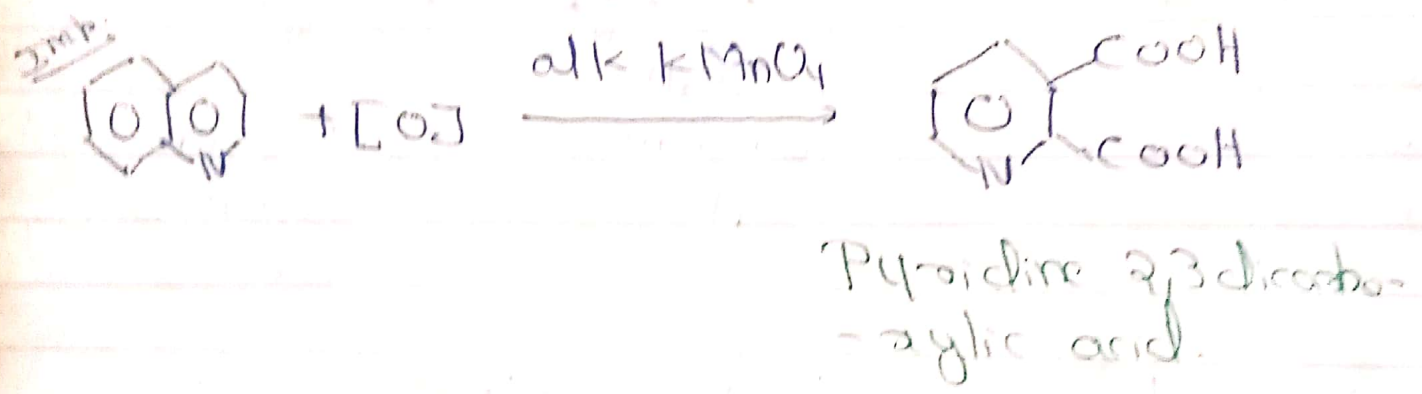 Imp.
N + [O] alk KMnO4 COOH
N COOH
Pyridine 2,3 dicarbo-
-xylic acid.